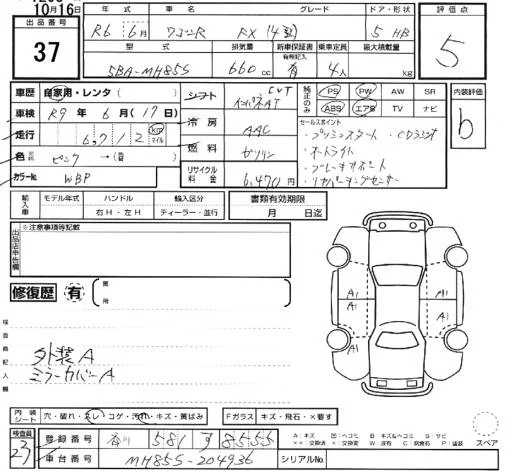 10月16日
出品番号 37
年式 車名 グレード ドア・形状
R6 6月 ワゴンR FX 5 HB
評価点 5
型式 排気量 新車保証書 乗車定員 最大積載量
有無記入
5BA-MH85S 660 cc 有 4人 kg
車歴 自家用・レンタ( )
シフト CVT インパネAT
純正のみ PS PW AW SR
ABS エアB TV ナビ
内装評価 b
車検 R9年 6月(17日)
冷房 AAC
セールスポイント
・プッシュスタート ・CDラジオ
・オートライト
・ブレーキサポート
・リヤパーキングセンサー
走行 6,712 km マイル
燃料 ガソリン
色 ピンク →( )
カラーNo. WBP
リサイクル料金 6,470円
輸入車 モデル年式 ハンドル 輸入区分
右H・左H ディーラー・並行
書類有効期限
月 日迄
出品店申告欄 ※注意事項等記載
修復歴 有 箇所
検査員記入欄
外装A
ミラーカバーA
A1 A1
A1
内装シート 穴・破れ・スレ・コゲ・汚れ・キズ・黄ばみ
Fガラス キズ・飛石・×要す
スペア
検査員 23
登録番号 香川 581 す 8555
車台番号 MH85S-204936
シリアルNo.